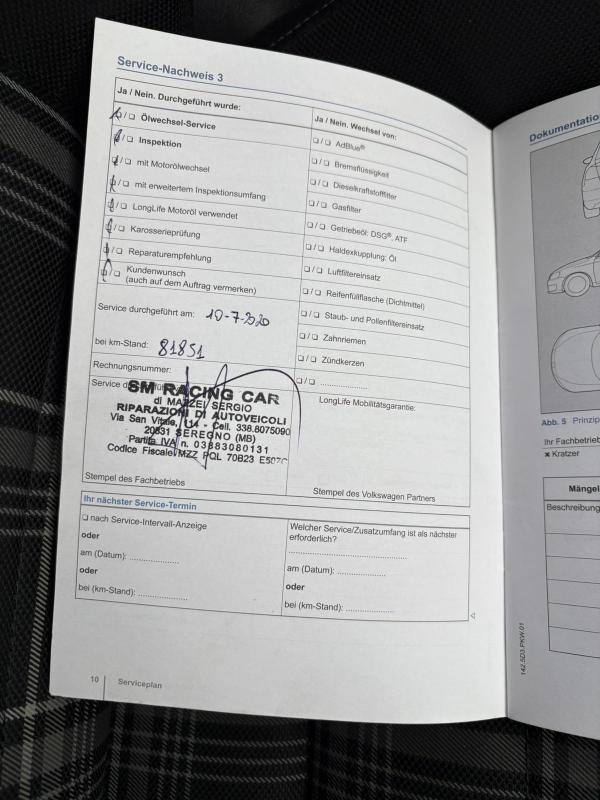 Service-Nachweis 3
Ja / Nein. Durchgeführt wurde:
❏ / ❏ Ölwechsel-Service
❏ / ❏ Inspektion
❏ / ❏ mit Motorölwechsel
❏ / ❏ mit erweitertem Inspektionsumfang
❏ / ❏ LongLife Motoröl verwendet
❏ / ❏ Karosserieprüfung
❏ / ❏ Reparaturempfehlung
❏ / ❏ Kundenwunsch
(auch auf dem Auftrag vermerken)
Service durchgeführt am: 10-7-2020
bei km-Stand: 81851
Rechnungsnummer:
Service
SM RACING CAR
di MAZZEI SERGIO
RIPARAZIONI DI AUTOVEICOLI
Via San Vitale, 114 - Cell. 338.8075090
20831 SEREGNO (MB)
Partita IVA n. 03383080131
Codice Fiscale MZZ PQL 70B23 E507C
Stempel des Fachbetriebs
Ja / Nein. Wechsel von:
❏ / ❏ AdBlue®
❏ / ❏ Bremsflüssigkeit
❏ / ❏ Dieselkraftstofffilter
❏ / ❏ Gasfilter
❏ / ❏ Getriebeöl: DSG®, ATF
❏ / ❏ Haldexkupplung: Öl
❏ / ❏ Luftfiltereinsatz
❏ / ❏ Reifenfüllflasche (Dichtmittel)
❏ / ❏ Staub- und Pollenfiltereinsatz
❏ / ❏ Zahnriemen
❏ / ❏ Zündkerzen
❏ / ❏ ....................
LongLife Mobilitätsgarantie:
Stempel des Volkswagen Partners
Ihr nächster Service-Termin
❏ nach Service-Intervall-Anzeige
oder
am (Datum): ....................
oder
bei (km-Stand): ....................
Welcher Service/Zusatzumfang ist als nächster
erforderlich?
..................................................
am (Datum): ....................
oder
bei (km-Stand): ....................
10 Serviceplan
Dokumentatio
Abb. 5 Prinzip
Ihr Fachbetrieb
× Kratzer
Mängel
Beschreibung
142.5D3.PKW.01